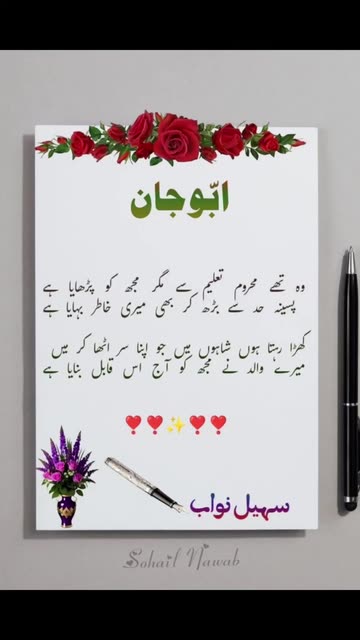 ابّو جان
وہ تھے محروم تعلیم سے مگر مجھ کو پڑھایا ہے
پسینہ حد سے بڑھ کر بھی میری خاطر بہایا ہے
کھڑا رہتا ہوں شاہوں میں جو اپنا سر اٹھا کر میں
میرے والد نے مجھ کو آج اس قابل بنایا ہے
سہیل نواب
Sohail Nawab